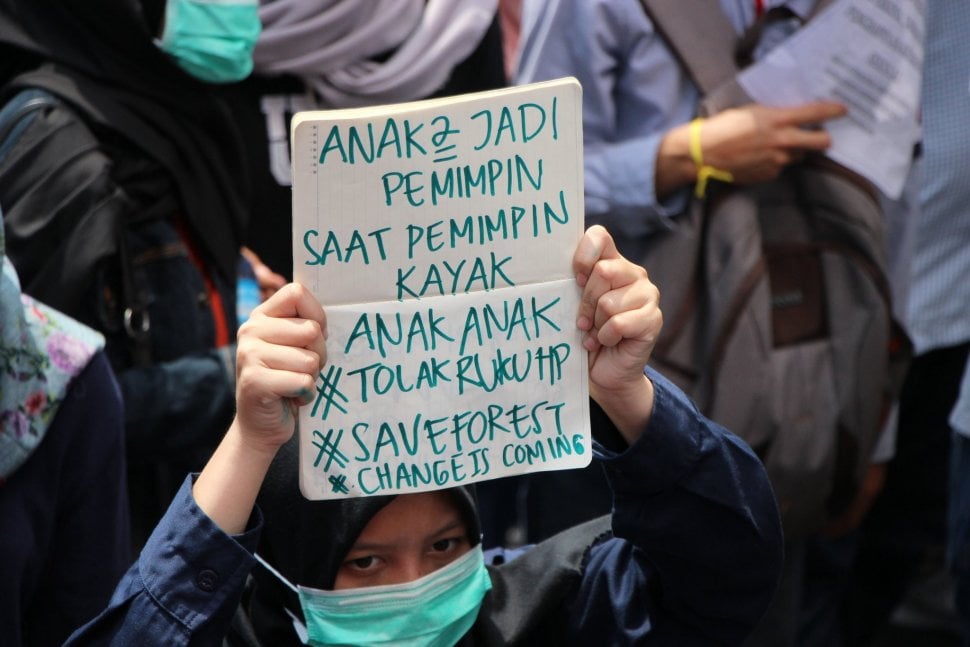 ANAK2 JADI
PEMIMPIN
SAAT PEMIMPIN
KAYAK
ANAK ANAK
#TOLAKRUKUHP
#SAVEFOREST
#CHANGE IS COMING